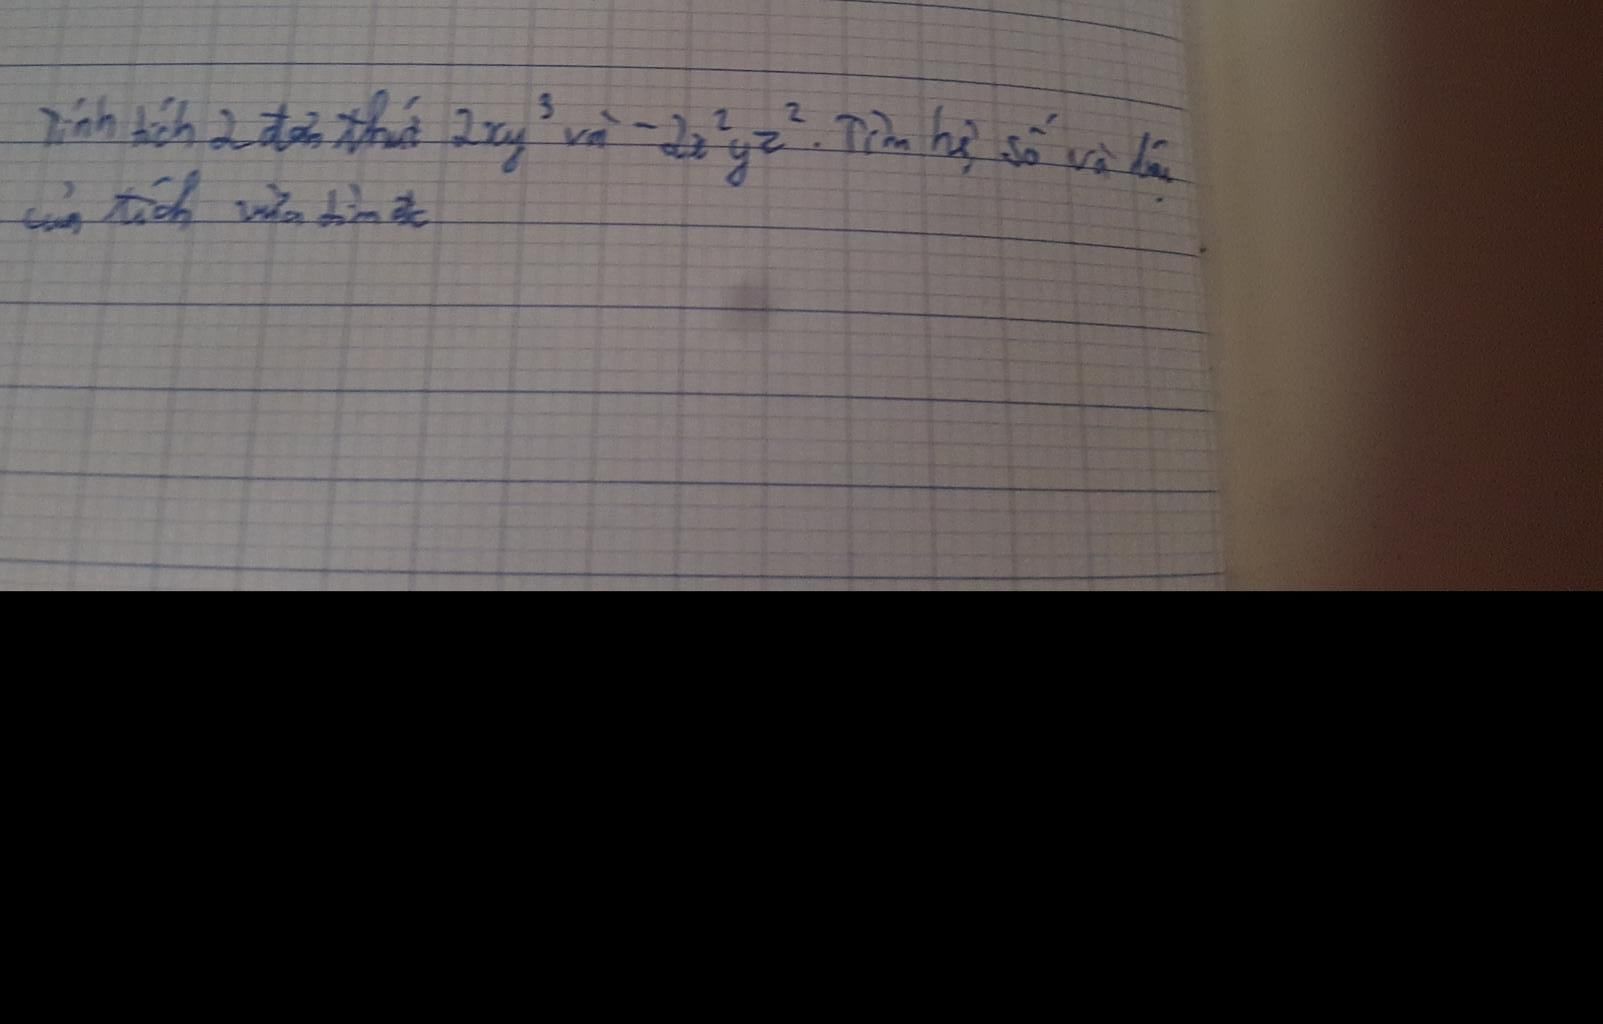 Tính tích 2 đơn thức 2xy³ và -2x²yz². Tìm hệ số và bậc
của tích vừa tìm đc